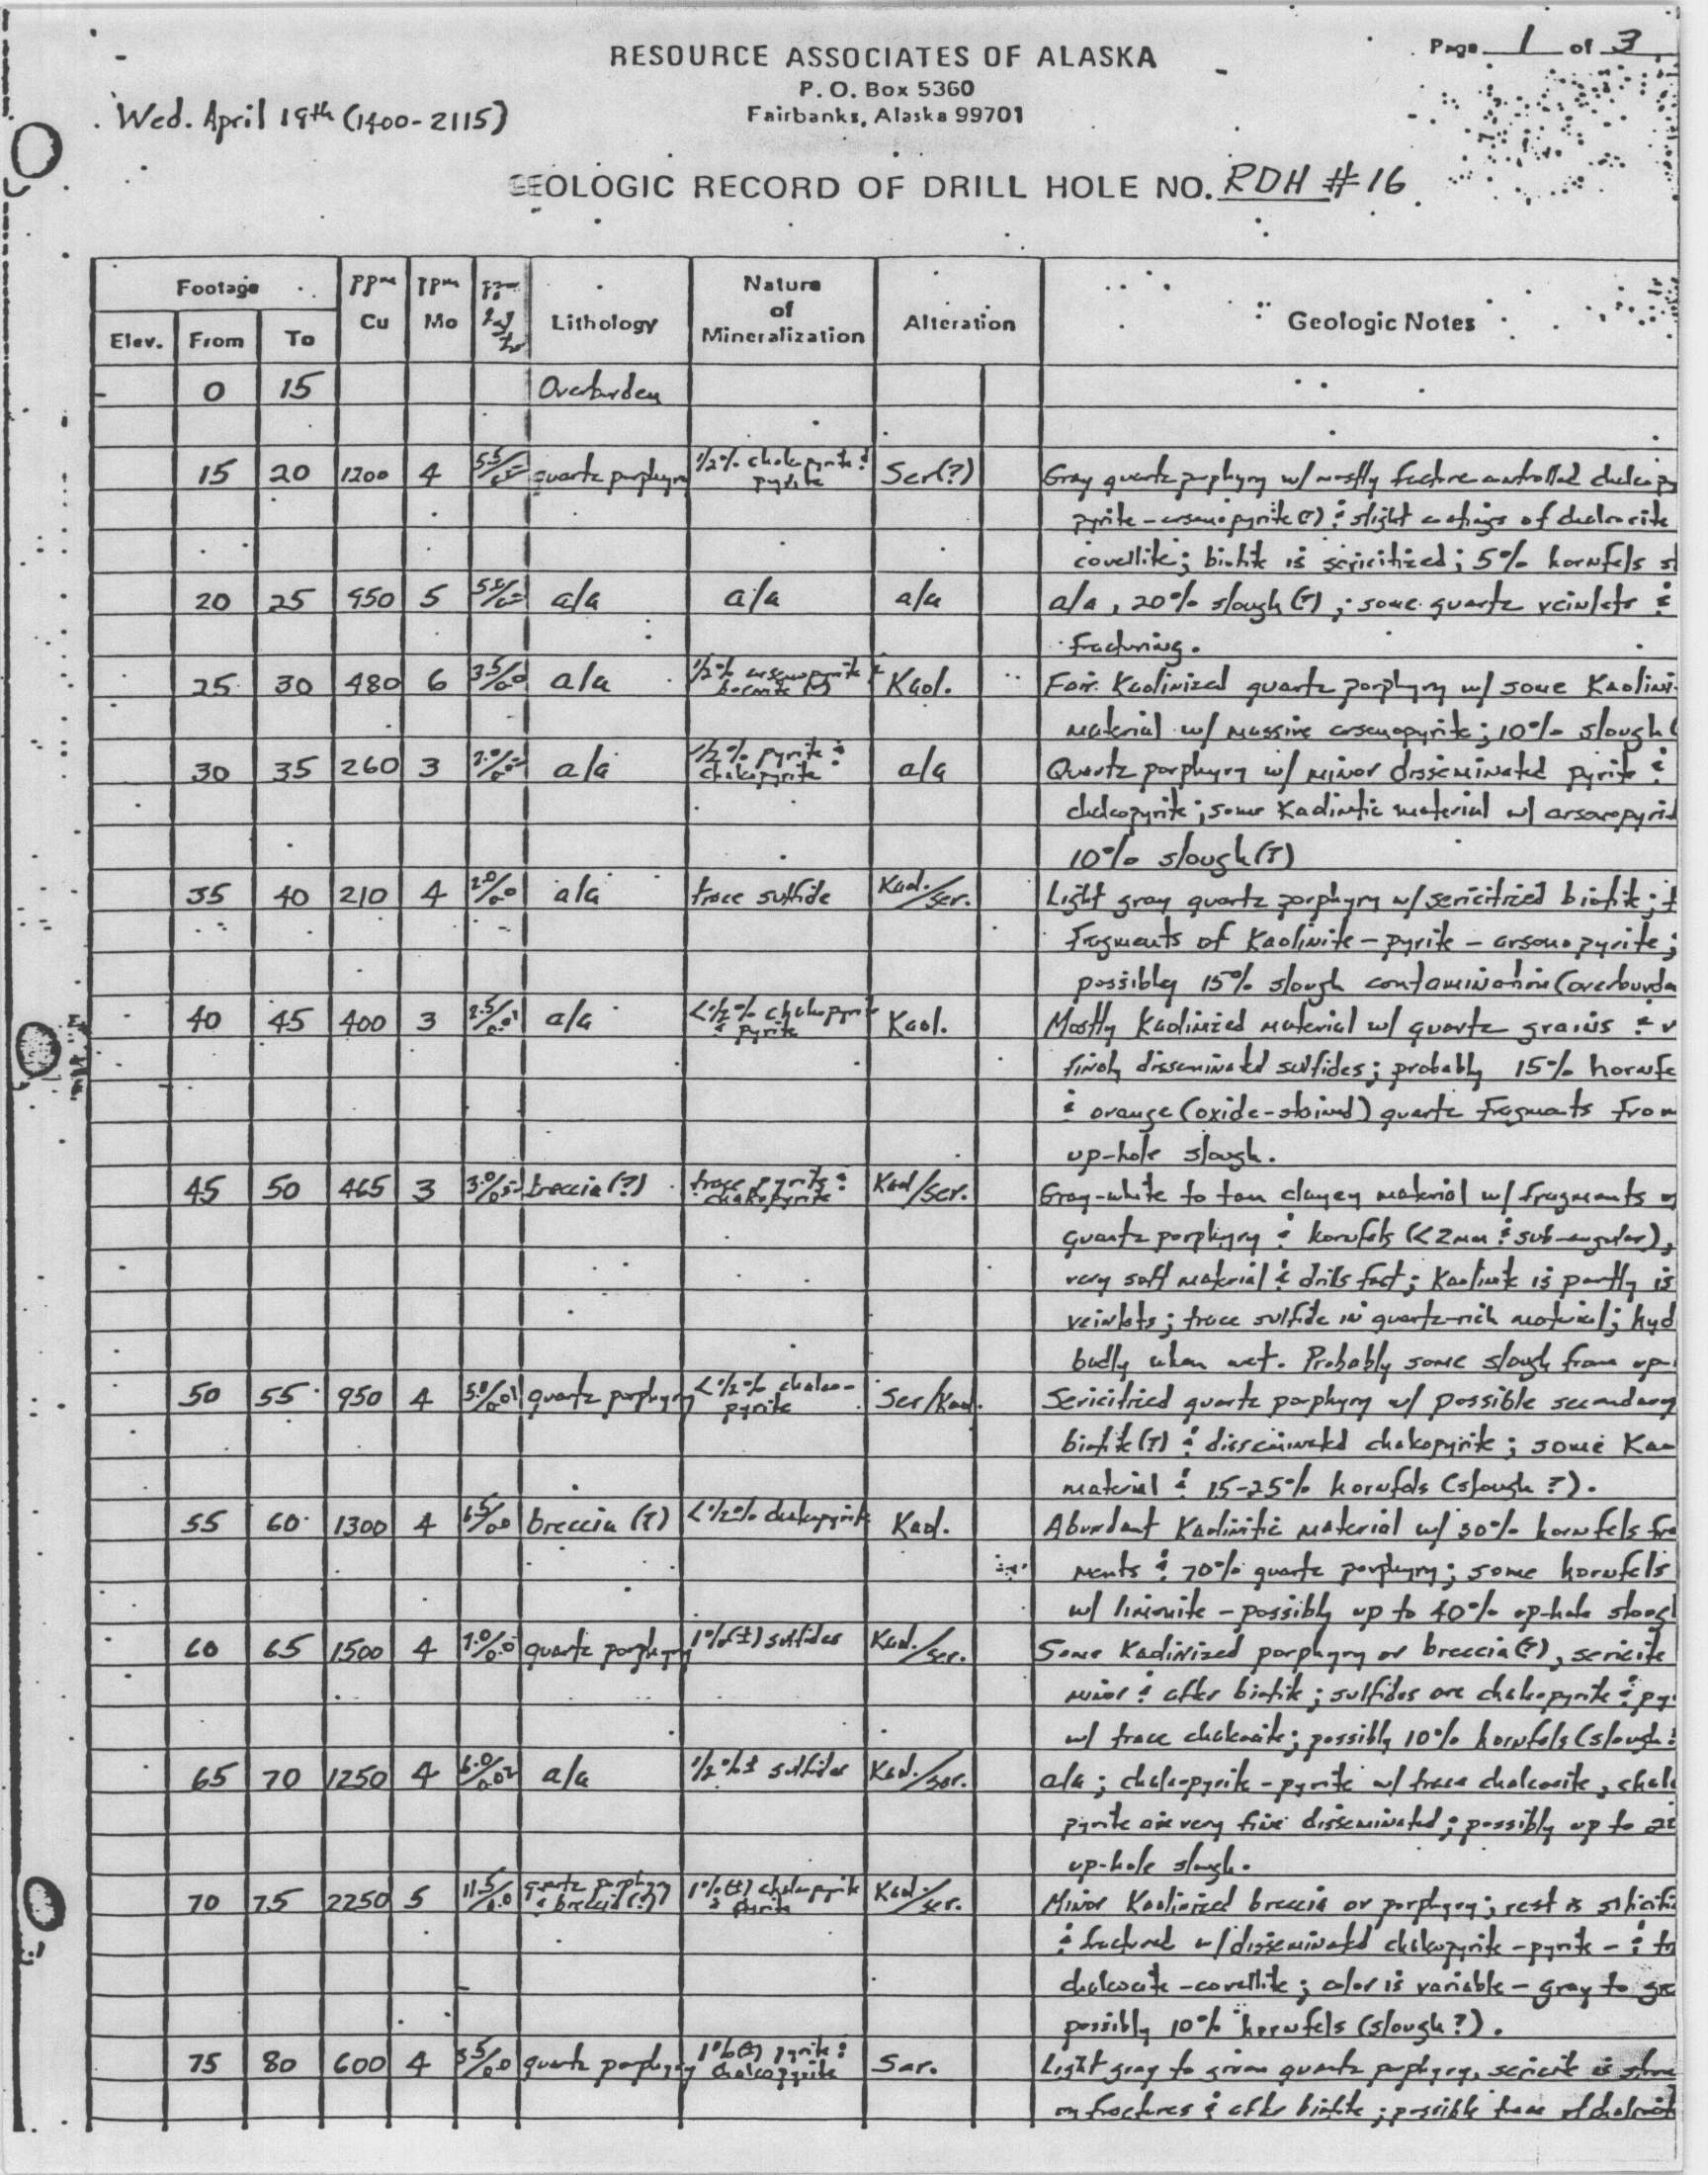 Page 1 of 3
RESOURCE ASSOCIATES OF ALASKA
P. O. Box 5360
Fairbanks, Alaska 99701
Wed. April 19th (1400-2115)
GEOLOGIC RECORD OF DRILL HOLE NO. RDH #16
Footage ppm Cu ppm Mo Lithology Nature of Mineralization Alteration Geologic Notes
Elev. From To
0 15 Overburden
15 20 1200 4 quartz porphyry 1/2% chalcopyrite & pyrite Ser(?) Gray quartz porphyry w/ mostly fracture controlled chalcopy
pyrite - arsenopyrite(?) & slight coatings of chalcocite
covellite; biotite is sericitized; 5% hornfels sl
20 25 950 5 a/a a/a a/a a/a, 20% slough (?); some quartz veinlets &
fracturing.
25 30 480 6 3.5/0.0 a/a 1/2% arsenopyrite & bornite (?) Kaol. Kaolinized quartz porphyry w/ some Kaolini
material w/ massive arsenopyrite; 10% slough (
30 35 260 3 a/a 1/2% pyrite & chalcopyrite a/a Quartz porphyry w/ minor disseminated pyrite &
chalcopyrite; some Kaolinitic material w/ arsenopyrit
10% slough (?)
35 40 210 4 2.0/0.0 a/a trace sulfide Kaol./ser. Light gray quartz porphyry w/ sericitized biotite; t
fragments of Kaolinite - pyrite - arsenopyrite;
possibly 15% slough contamination (overburde
40 45 400 3 2.5/0.01 a/a <1/2% chalcopyrite & pyrite Kaol. Mostly Kaolinized material w/ quartz grains & v
finely disseminated sulfides; probably 15% hornfe
& orange (oxide-stained) quartz fragments from
up-hole slough.
45 50 465 3 breccia (?) trace pyrite & chalcopyrite Kaol/ser. Gray-white to tan clayey material w/ fragments o
quartz porphyry & hornfels (<2mm & sub-angular),
very soft material & drills fast; Kaolinite is partly is
veinlets; trace sulfide in quartz-rich material; hyd
badly when wet. Probably some slough from up-
50 55 950 4 5.0/.01 quartz porphyry <1/2% chalco-pyrite Ser/Kaol. Sericitized quartz porphyry w/ possible secondary
biotite (?) & disseminated chalcopyrite; some Kao
material & 15-25% hornfels (slough ?).
55 60 1300 4 6.5/0.0 breccia (?) <1/2% chalcopyrite Kaol. Abundant Kaolinitic material w/ 30% hornfels fra
ments & 70% quartz porphyry; some hornfels
w/ limonite - possibly up to 40% up-hole sloug
60 65 1500 4 7.0/0.0 quartz porphyry 1%(±) sulfides Kaol./ser. Some Kaolinized porphyry or breccia (?), sericite
minor & after biotite; sulfides are chalcopyrite & py
w/ trace chalcocite; possibly 10% hornfels (slough ?
65 70 1250 4 6.0/0.02 a/a 1/2%± sulfides Kaol./ser. a/a; chalcopyrite - pyrite w/ trace chalcocite, chalc
pyrite are very fine disseminated; possibly up to
up-hole slough.
70 75 2250 5 11.5/0.0 quartz porphyry & breccia (?) 1%(±) chalcopyrite & pyrite Kaol./ser. Minor Kaolinized breccia or porphyry; rest is silicifi
& fractured w/ disseminated chalcopyrite - pyrite - & tr
chalcocite - covellite; color is variable - gray to gre
possibly 10% hornfels (slough ?).
75 80 600 4 quartz porphyry 1%(±) pyrite & chalcopyrite Ser. Light gray to green quartz porphyry, sericite is
on fractures & after biotite; possible trace of chalcocit